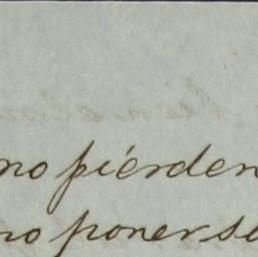 no piérden
no poner se